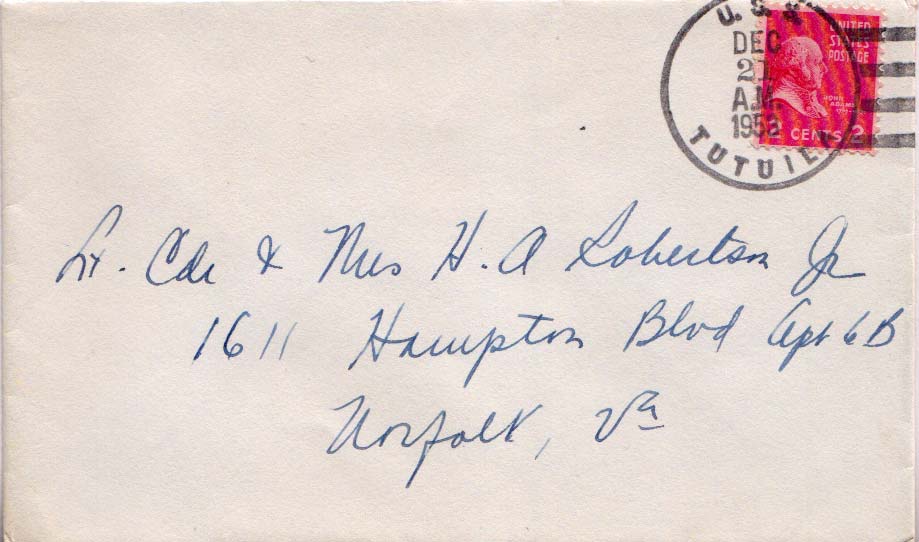 U. S. S.
DEC
21
A.M.
TUTUILA
UNITED
STATES
POSTAGE
JOHN
ADAMS
CENTS 2
Lt. Cdr & Mrs H. A Robertson Jr
1611 Hampton Blvd Apt 6B
Norfolk, Va